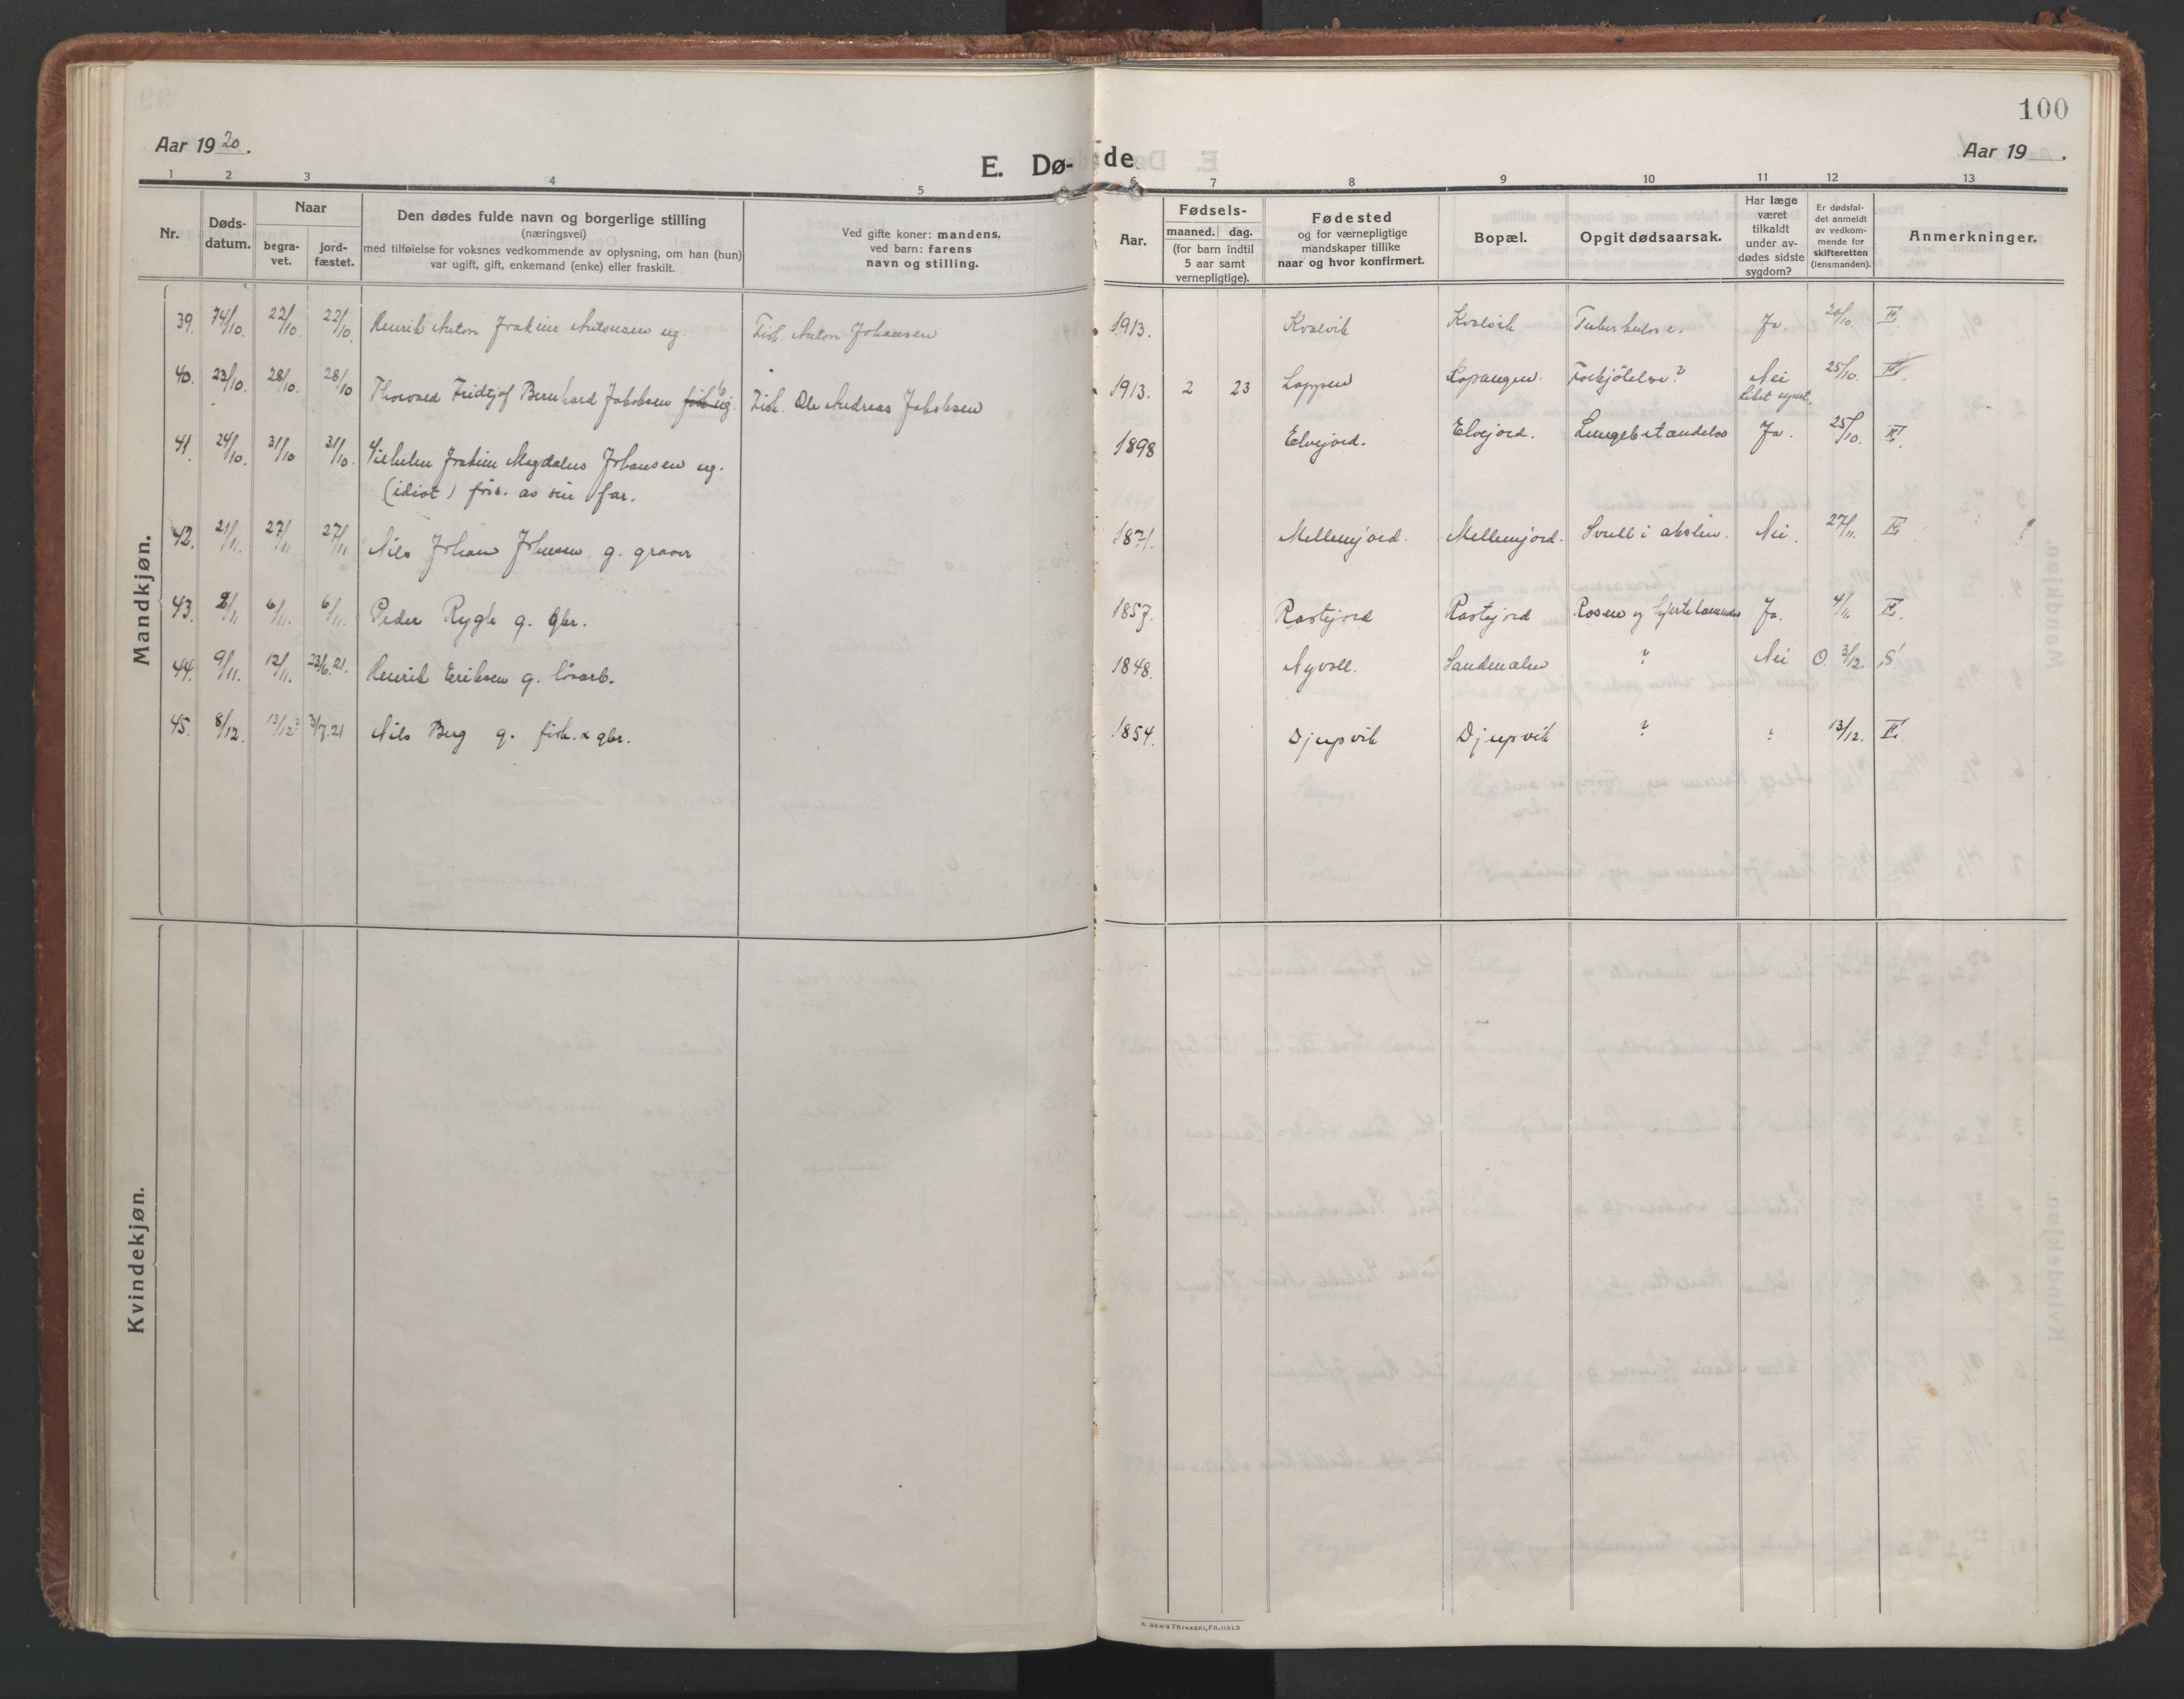 100
Aar 1920.
E. Dø-
de
Aar 19 .
1 2 3 4 5 6 7 8 9 10 11 12 13
Nr.
Døds-
datum.
Naar
begra-
vet.
jord-
fæstet.
Den dødes fulde navn og borgerlige stilling
(næringsvei)
med tilføielse for voksnes vedkommende av oplysning, om han (hun)
var ugift, gift, enkemand (enke) eller fraskilt.
Ved gifte koner: mandens,
ved barn: farens
navn og stilling.
Aar.
Fødsels-
maaned. dag.
(for barn indtil
5 aar samt
vernepligtige).
Fødested
og for værnepligtige
mandskaper tillike
naar og hvor konfirmert.
Bopæl.
Opgit dødsaarsak.
Har læge
været
tilkaldt
under av-
dødes sidste
sygdom?
Er dødsfal-
det anmeldt
av vedkom-
mende for
skifteretten
(lensmanden).
Anmerkninger.
Mandkjøn.
39. 14/10. 22/10. 22/10. Henrik Anton Joakim Antonsen ug. Fisk. Anton Johansen 1913. Kvalvik Kvalvik Tuberkulose. Ja. 20/10.
40. 23/10. 28/10. 28/10 Thorvald Fridtjof Bernhard Jakobsen ug. Fisk. Ole Andreas Jakobsen 1913. 2 23 Loppen Kopangen. Forkjölelse? Nei 25/10.
Liket synet.
41. 24/10. 31/10 31/10. Vilhelm Joakim Magdalus Johansen ug. 1898 Elvejord. Elvejord. Lungebetændelse Ja. 25/10.
(idiot) fors. av sin far.
42. 21/11. 27/11 27/11 Nils Johan Johnsen g. graver 1871. Mellemjord. Mellemjord. Svull i akslen. Nei. 27/11.
43. 2/11 6/11. 6/11. Peder Rygh g. gbr. 1857. Rastejord Rastejord Rosen og hjertelammelse Ja. 4/11.
44. 9/11. 12/11. 23/6.21. Henrik Eriksen g. lösarb. 1848. Nyvoll. Sandenalen ? Nei O. 3/12. S!
45. 8/12. 13/12? 3/7.21 Nils Berg g. fisk. & gbr. 1854. Djupvik Djupvik ? : 13/12.
Kvindekjøn.